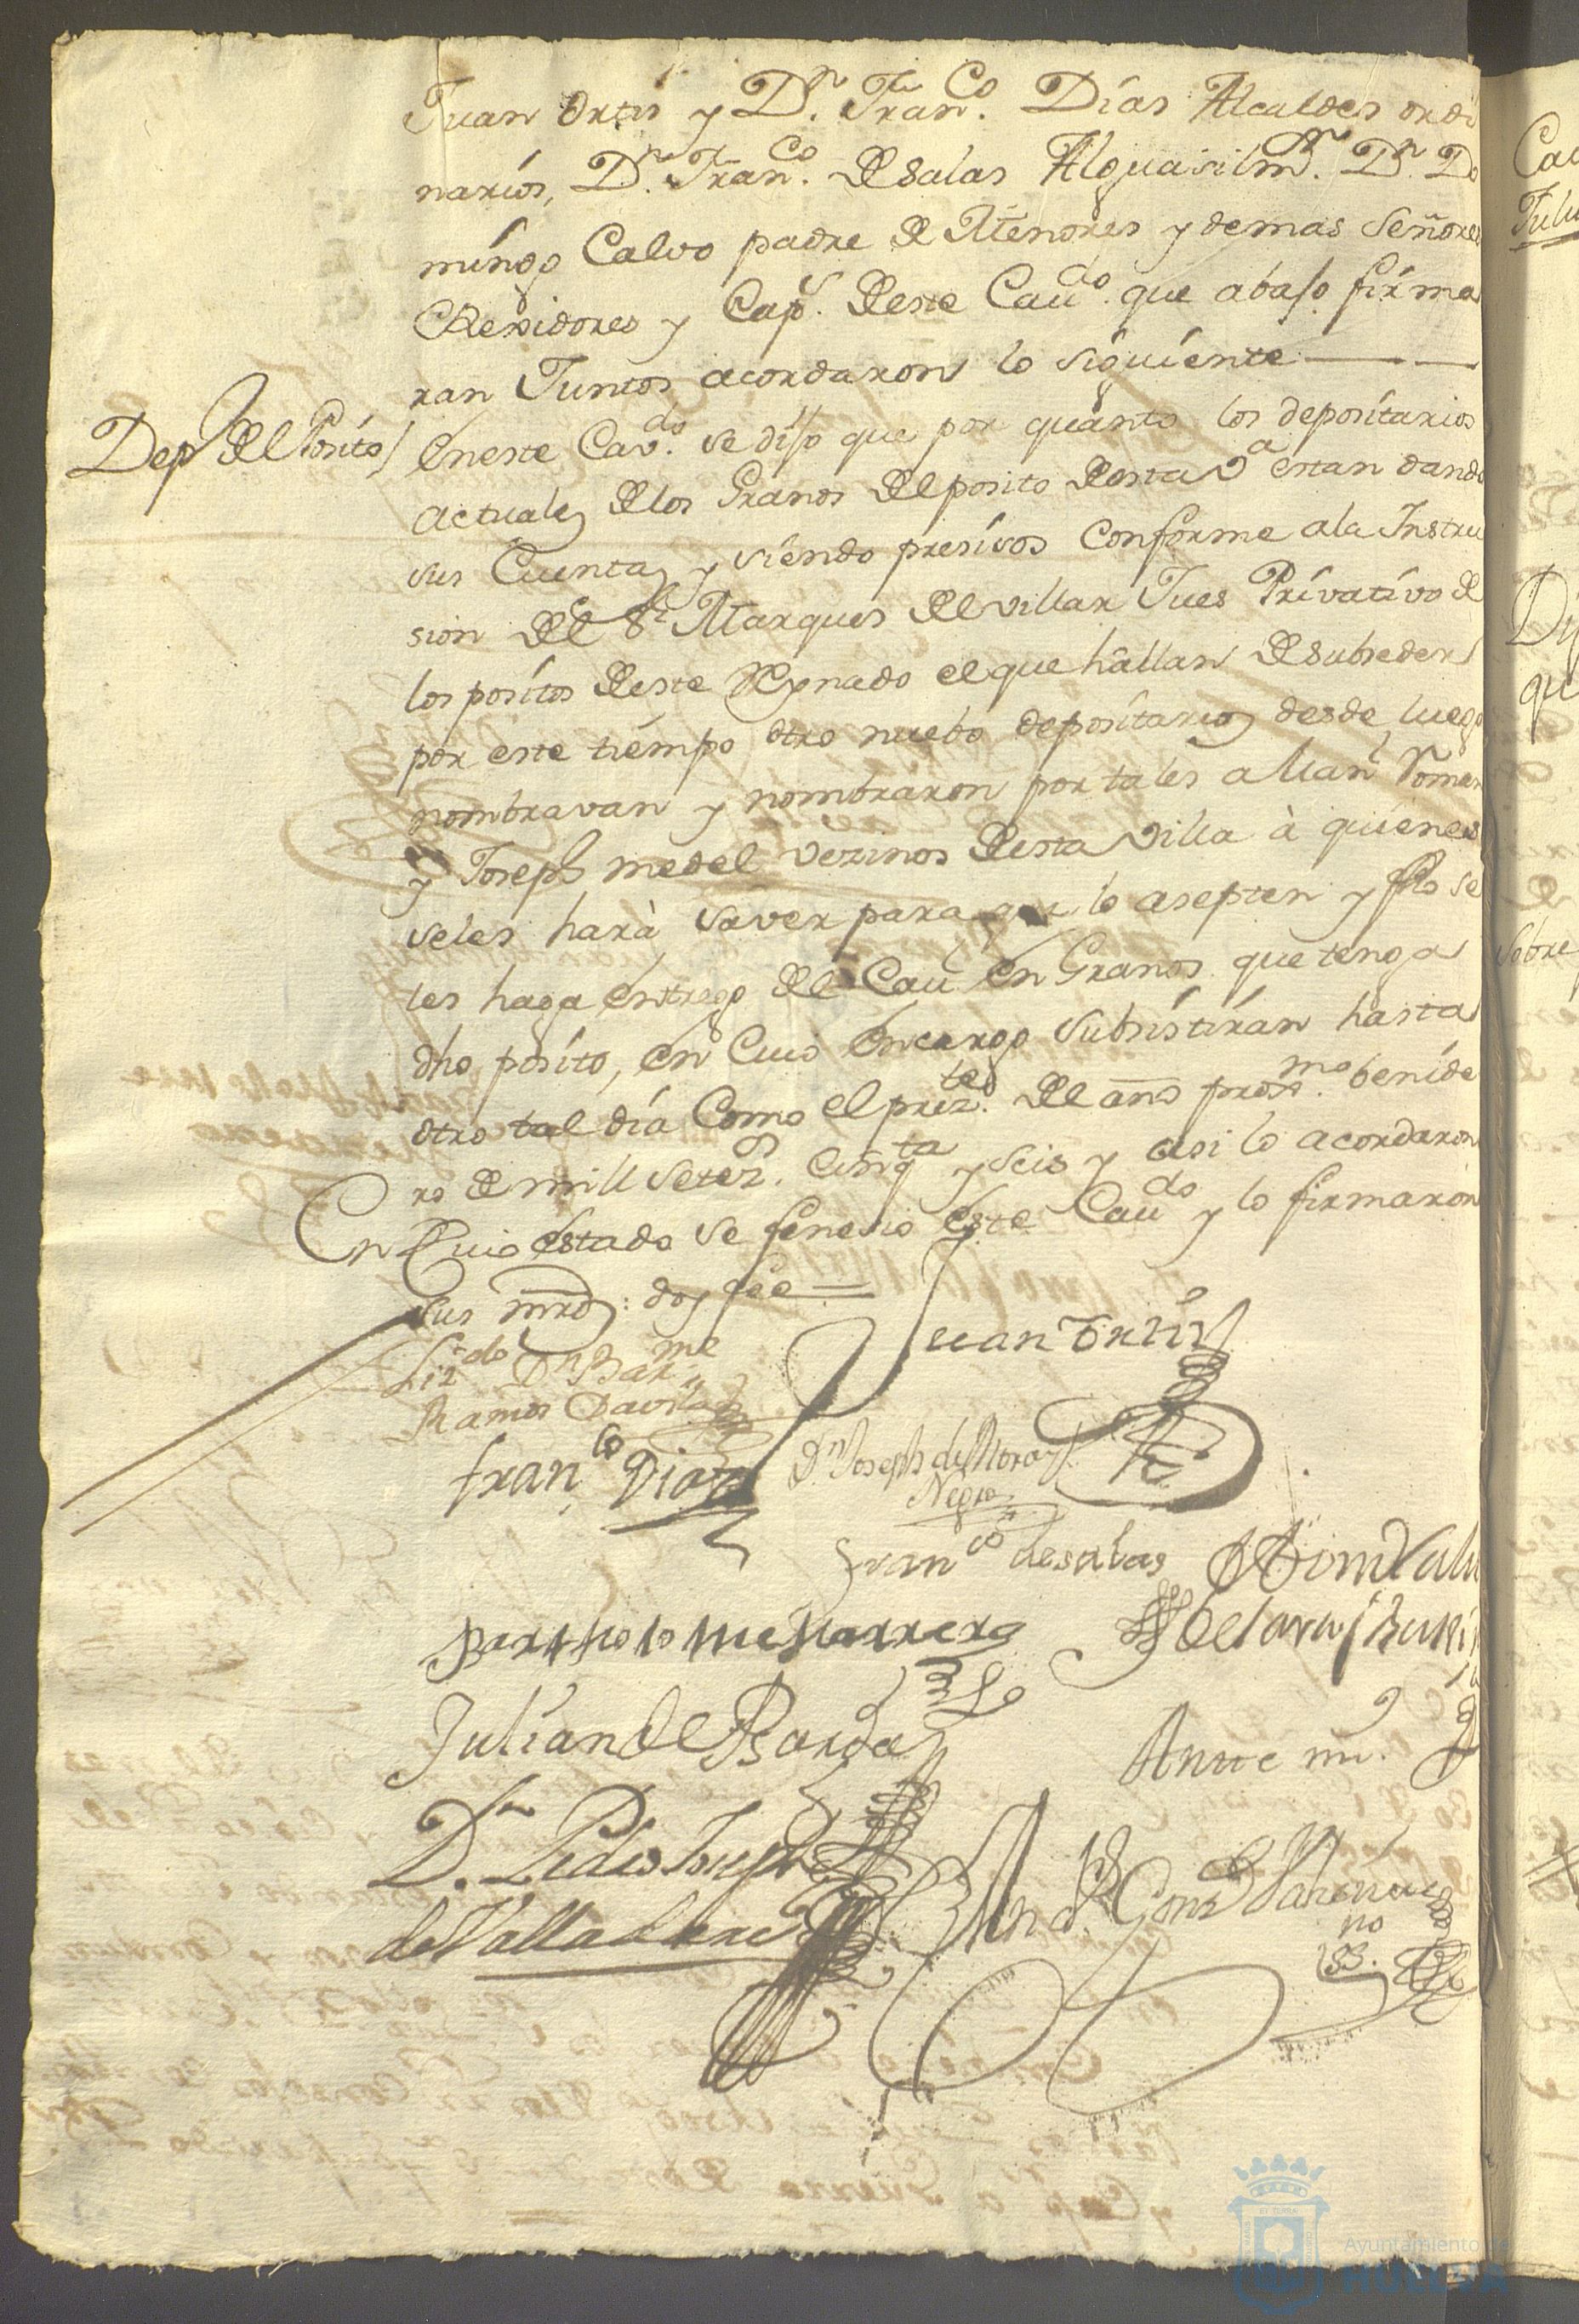 Juan Ortis y Dn. Franco. Días Alcaldes ordi
narios, Dn. Franco. De Salas Alguasil mr. Dn. Do
míngo Calvo padre de Menores y demas Señores
Rexidores y Capl. Deste Caudo. que abajo firma
ran Juntos acordaron lo siguíente
Deps del Posito
Eneste Cavdo. se dijo que por quanto los deposítarios
actuales de los Granos del posito desta Va estan dando
sus Cuentas y siéndo presísos Conforme a la Instru
sion del Sr. Marques del villar Jues Privatívo de
los posítos deste Reynado el que hallan de subseder
por este tiémpo otro nuebo deposítarios desde luego
nombravan y nombraron por tales a Manl Roman
y Joseph medel vezinos desta villa à quienes
seles harà saver para que lo asepten y se
les haga entrego del Cau en Granos que tenga
dho posíto, en Cuio encargo subsístiran hasta
otro tal día Como el preste. del año proxmo benide
ro de mill setezs. Cinqta y seis y asi lo acordaron
En Cuio estado se fenesio este Caudo y lo firmaron
sus mrds: doy fee
Lizdo Dn Barme
Ramos Davila
Juan Ortis
Franco Diaz
Dn Joseph de Mora y
Negro
Franco de salas
Bartholome Marrero
Julian de Barda
Ante mi.
Dn. Pedro Joseph
de Valladares
no
SS.
Ayuntamiento de
HUELVA